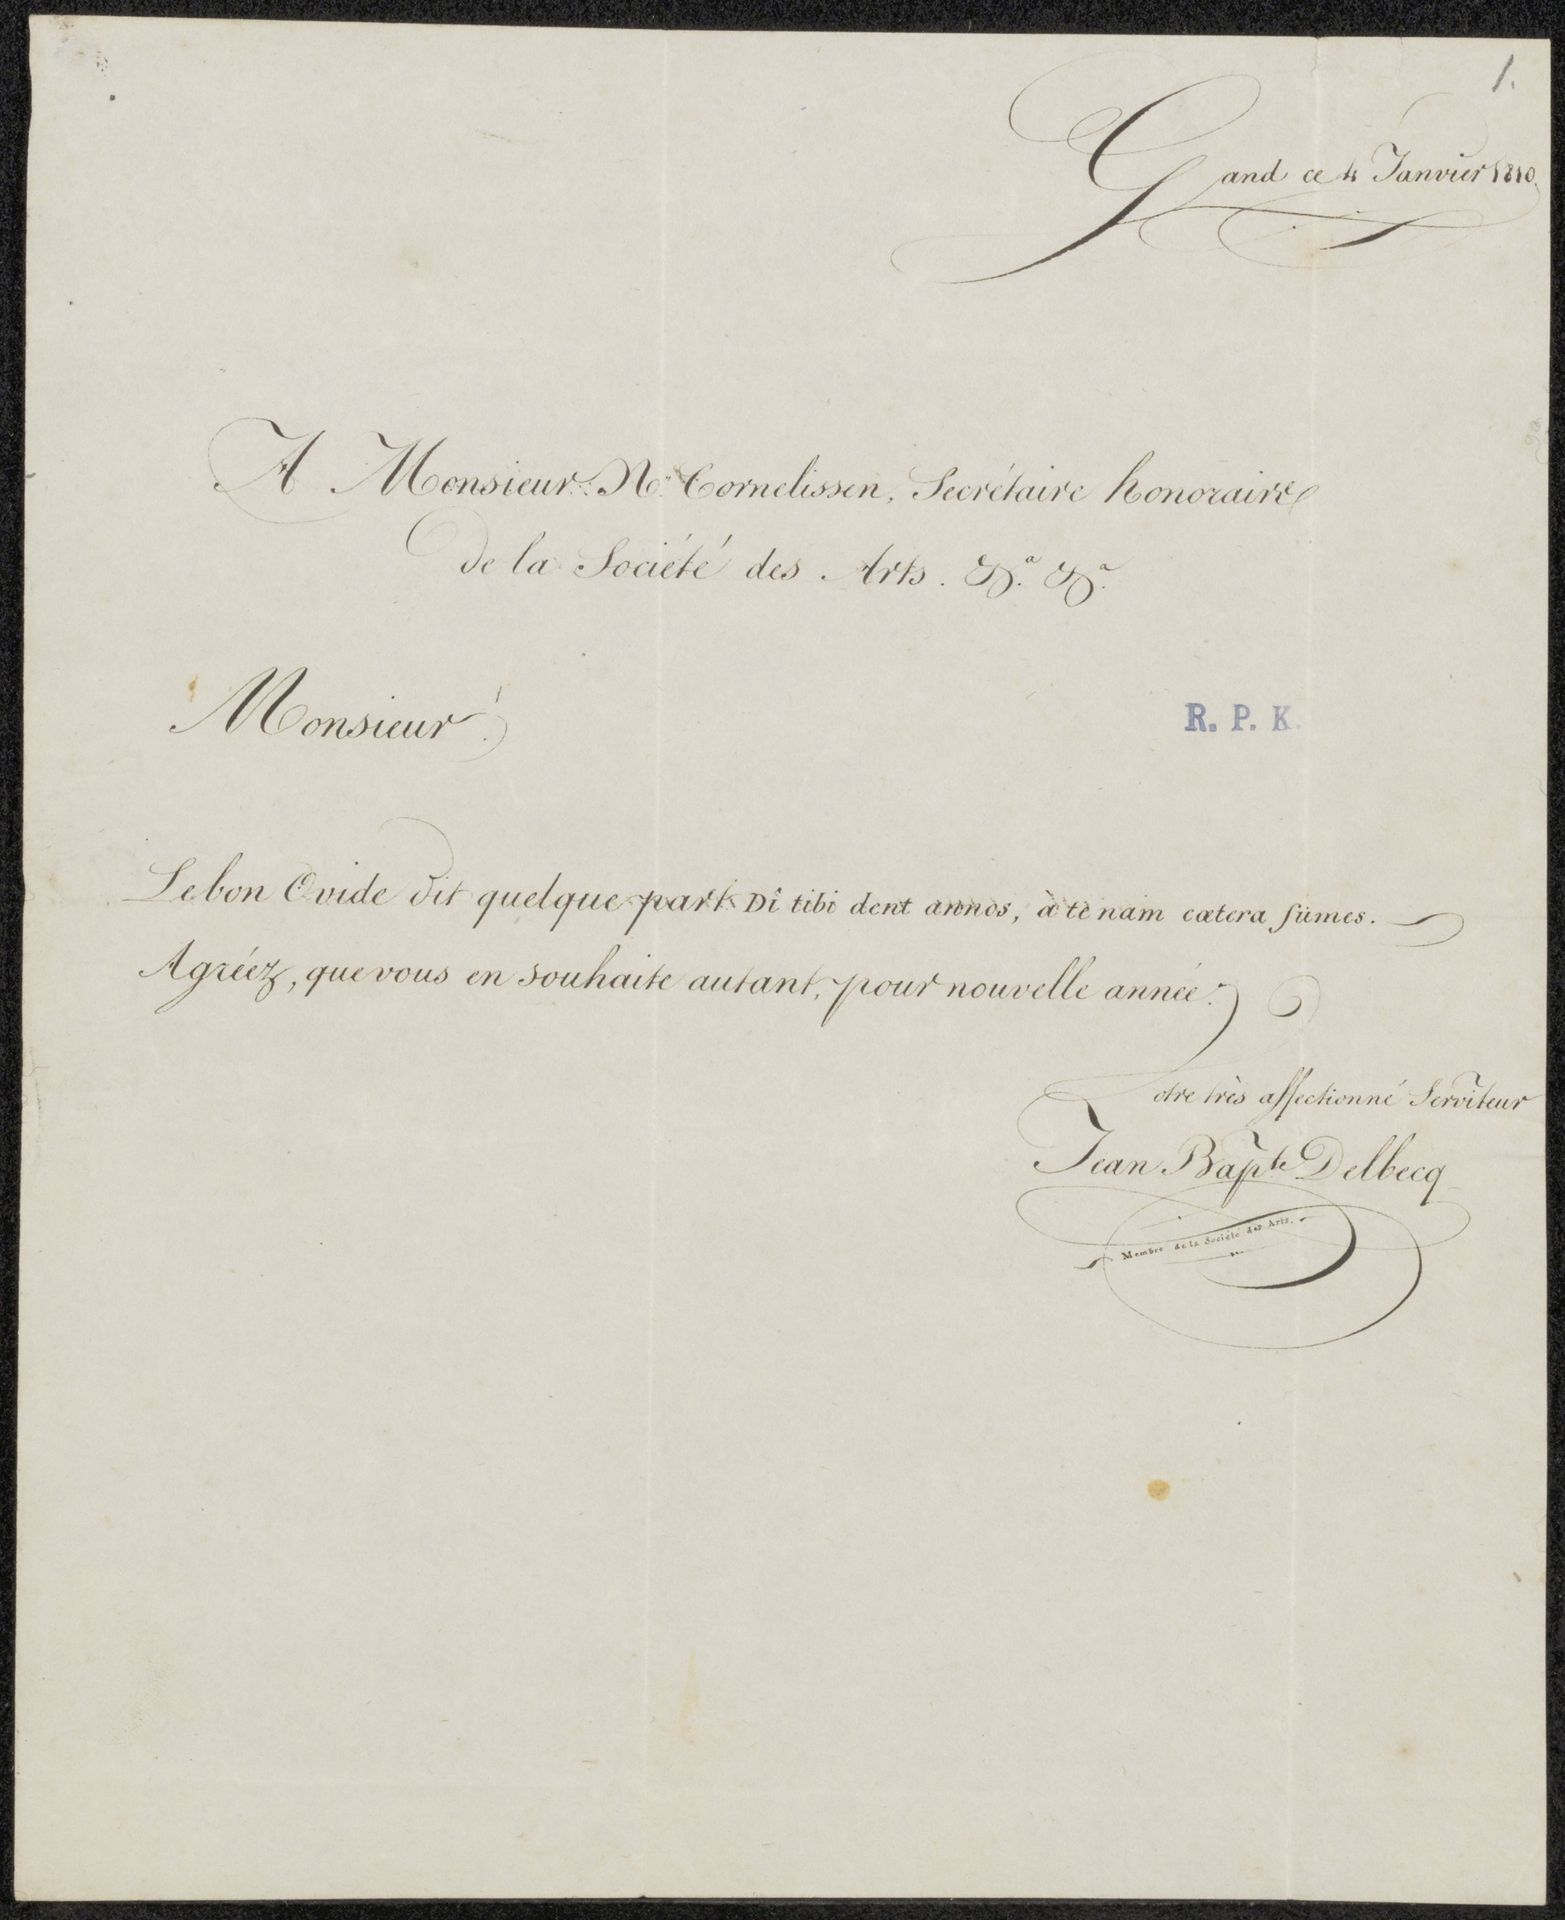 1.
Gand ce 4 Janvier 1810.
A Monsieur N. Cornelissen, Secrétaire honoraire
de la Société des Arts. &.a &.a
Monsieur!
R. P. K.
Le bon Ovide dit quelque part Dî tibi dent annos, à tè nam cœtera sümes.
Agréez, que vous en souhaite autant, pour nouvelle année.
Votre très affectionné Serviteur
Jean Bapte Delbecq
Membre de la Société des Arts.